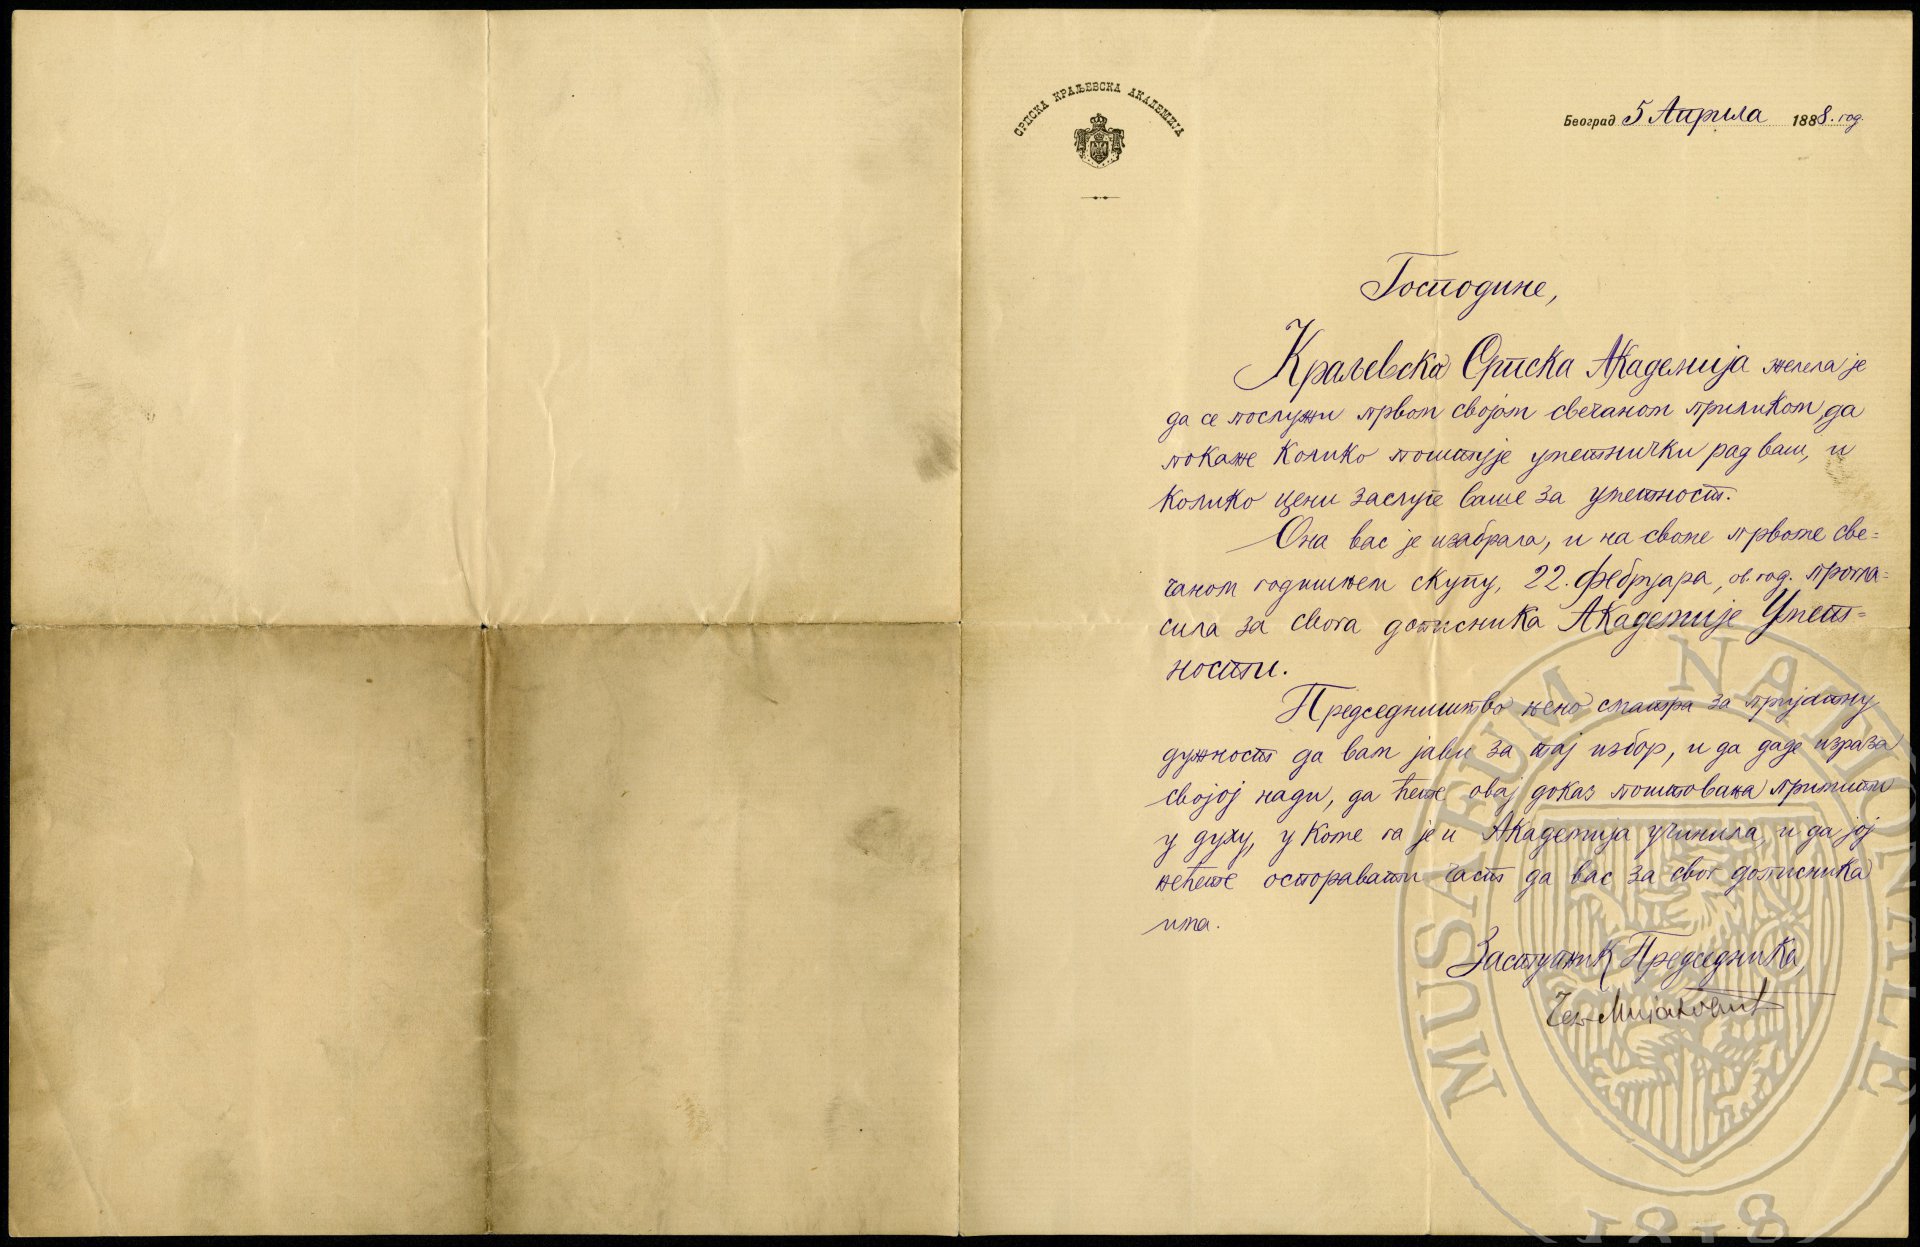 СРПСКА КРАЉЕВСКА АКАДЕМИЈА
Београд 5 Априла 1888. год.
Господине,
Краљевска Српска Академија желела је
да се послужи првом својом свечаном приликом, да
покаже колико поштује уметнички рад ваш, и
колико цени заслуге ваше за уметност.
Она вас је изабрала, и на своме првоме све=
чаном годишњем скупу, 22. фебруара, ов. год. прогла=
сила за свога дописника Академије Умет=
ности.
Председништво њено сматра за пријатну
дужност да вам јави за тај избор, и да даде израза
својој нади, да ћете овај доказ поштовања примити
у духу, у коме га је и Академија учинила, и да јој
нећете оспоравати част да вас за свог дописника
има.
Заступник Председника,
Чед. Мијатовић
MUSAEUM NATIONALE
1818